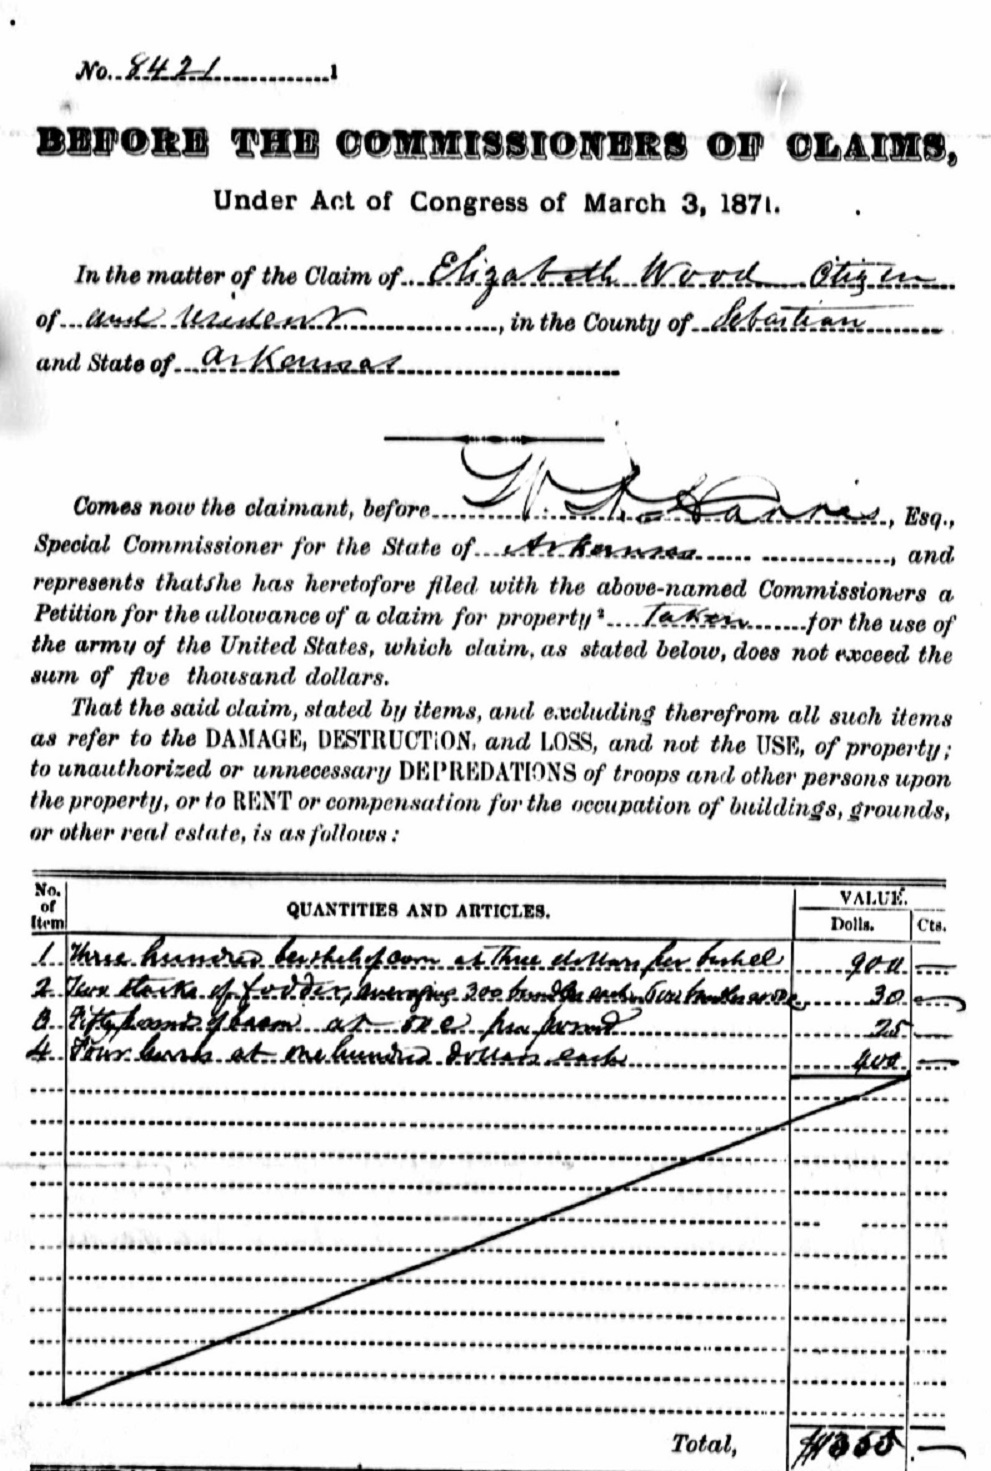 No. 8421 1
BEFORE THE COMMISSIONERS OF CLAIMS,
Under Act of Congress of March 3, 1871.
In the matter of the Claim of Elizabeth Wood Citizen
of and resident, in the County of Sebastian
and State of Arkansas
Comes now the claimant, before W. , Esq.,
Special Commissioner for the State of Arkansas, and
represents that she has heretofore filed with the above-named Commissioners a
Petition for the allowance of a claim for property ² Taken for the use of
the army of the United States, which claim, as stated below, does not exceed the
sum of five thousand dollars.
That the said claim, stated by items, and excluding therefrom all such items
as refer to the DAMAGE, DESTRUCTION, and LOSS, and not the USE, of property;
to unauthorized or unnecessary DEPREDATIONS of troops and other persons upon
the property, or to RENT or compensation for the occupation of buildings, grounds,
or other real estate, is as follows:
No. of Item QUANTITIES AND ARTICLES. VALUE. Dolls. Cts.
1 Three hundred bushel of corn at Three dollars per bushel 900 —
2 Two stacks of fodder, averaging 300 bundles each 30 —
3 Fifty pounds of bacon at per pound 25 —
4 Four at one hundred dollars each 400 —
Total, $1355 —